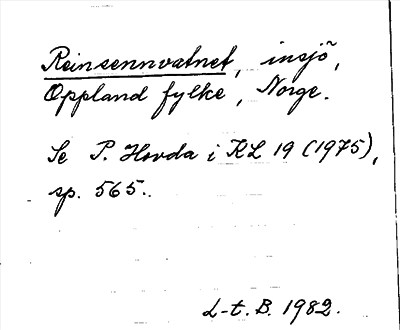 Reinsennvatnet, insjö,
Oppland fylke, Norge.
Se P. Hovda i KL 19 (1975),
sp. 565.
L-t. B. 1982.